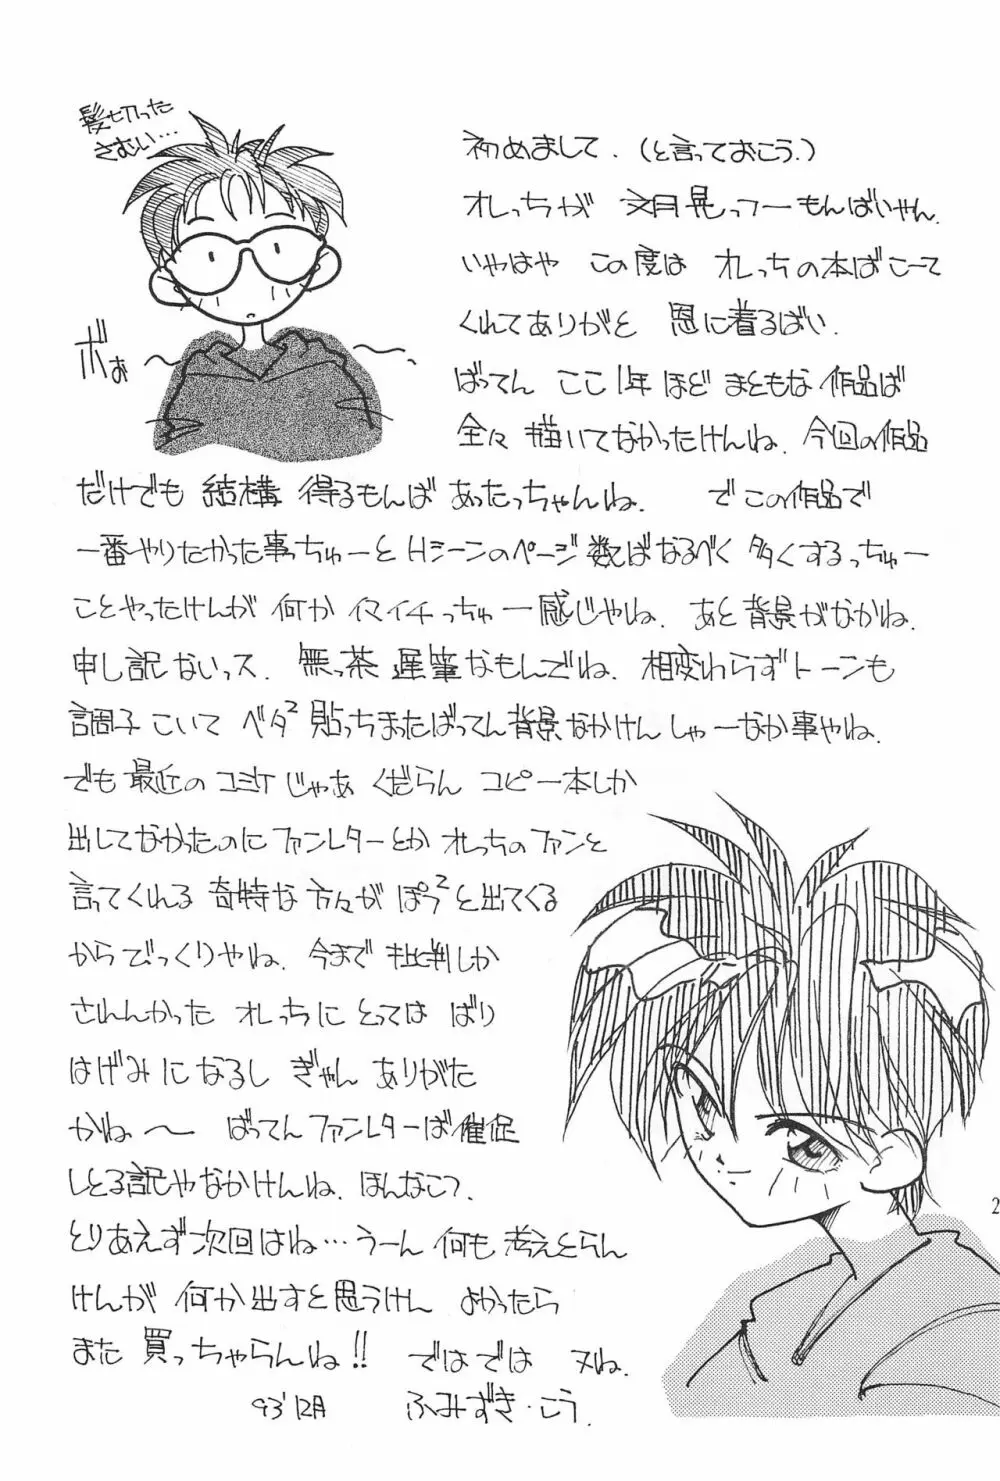 髪切った
さむい…
ボぉ
初めまして．(と言っておこう．)
オレっちが 文月晃っつーもんばいやん．
いやはや この度は オレっちの本ばこーて
くれてありがと 恩に着るばい．
ばってん ここ1年ほど まともな作品ば
全々描いてなかったけんね．今回の作品
だけでも 結構 得るもんば あったっちゃんね． でこの作品で
一番やりたかった事っちゅーと Hシーンのページ数ばなるべく多くするっちゅー
ことやったけんが 何か イマイチっちゅー感じやね．あと背景がなかね．
申し訳ないっス．無っ茶 遅筆なもんでね．相変わらずトーンも
調子こいて ベタ²貼っちまったばってん背景なかけん しゃーなか事やね．
でも最近のコミケじゃあ くだらん コピー本しか
出してなかったのに ファンレターとか オレっちのファンと
言ってくれる 奇特な方々が ぽつ²と出てくる
からびっくりやね．今まで批判しか
されんかった オレっちに とっては ばり
はげみになるし ぎゃん ありがた
かね〜 ばってんファンレターば催促
しとる訳やなかけんね．ほんなこつ．
とりあえず次回はね…うーん 何も考えとらん
けんが 何か出すと思うけん よかったら
また 買っちゃらんね!! ではでは ヌね．
93'12月 ふみずき・こう．
2